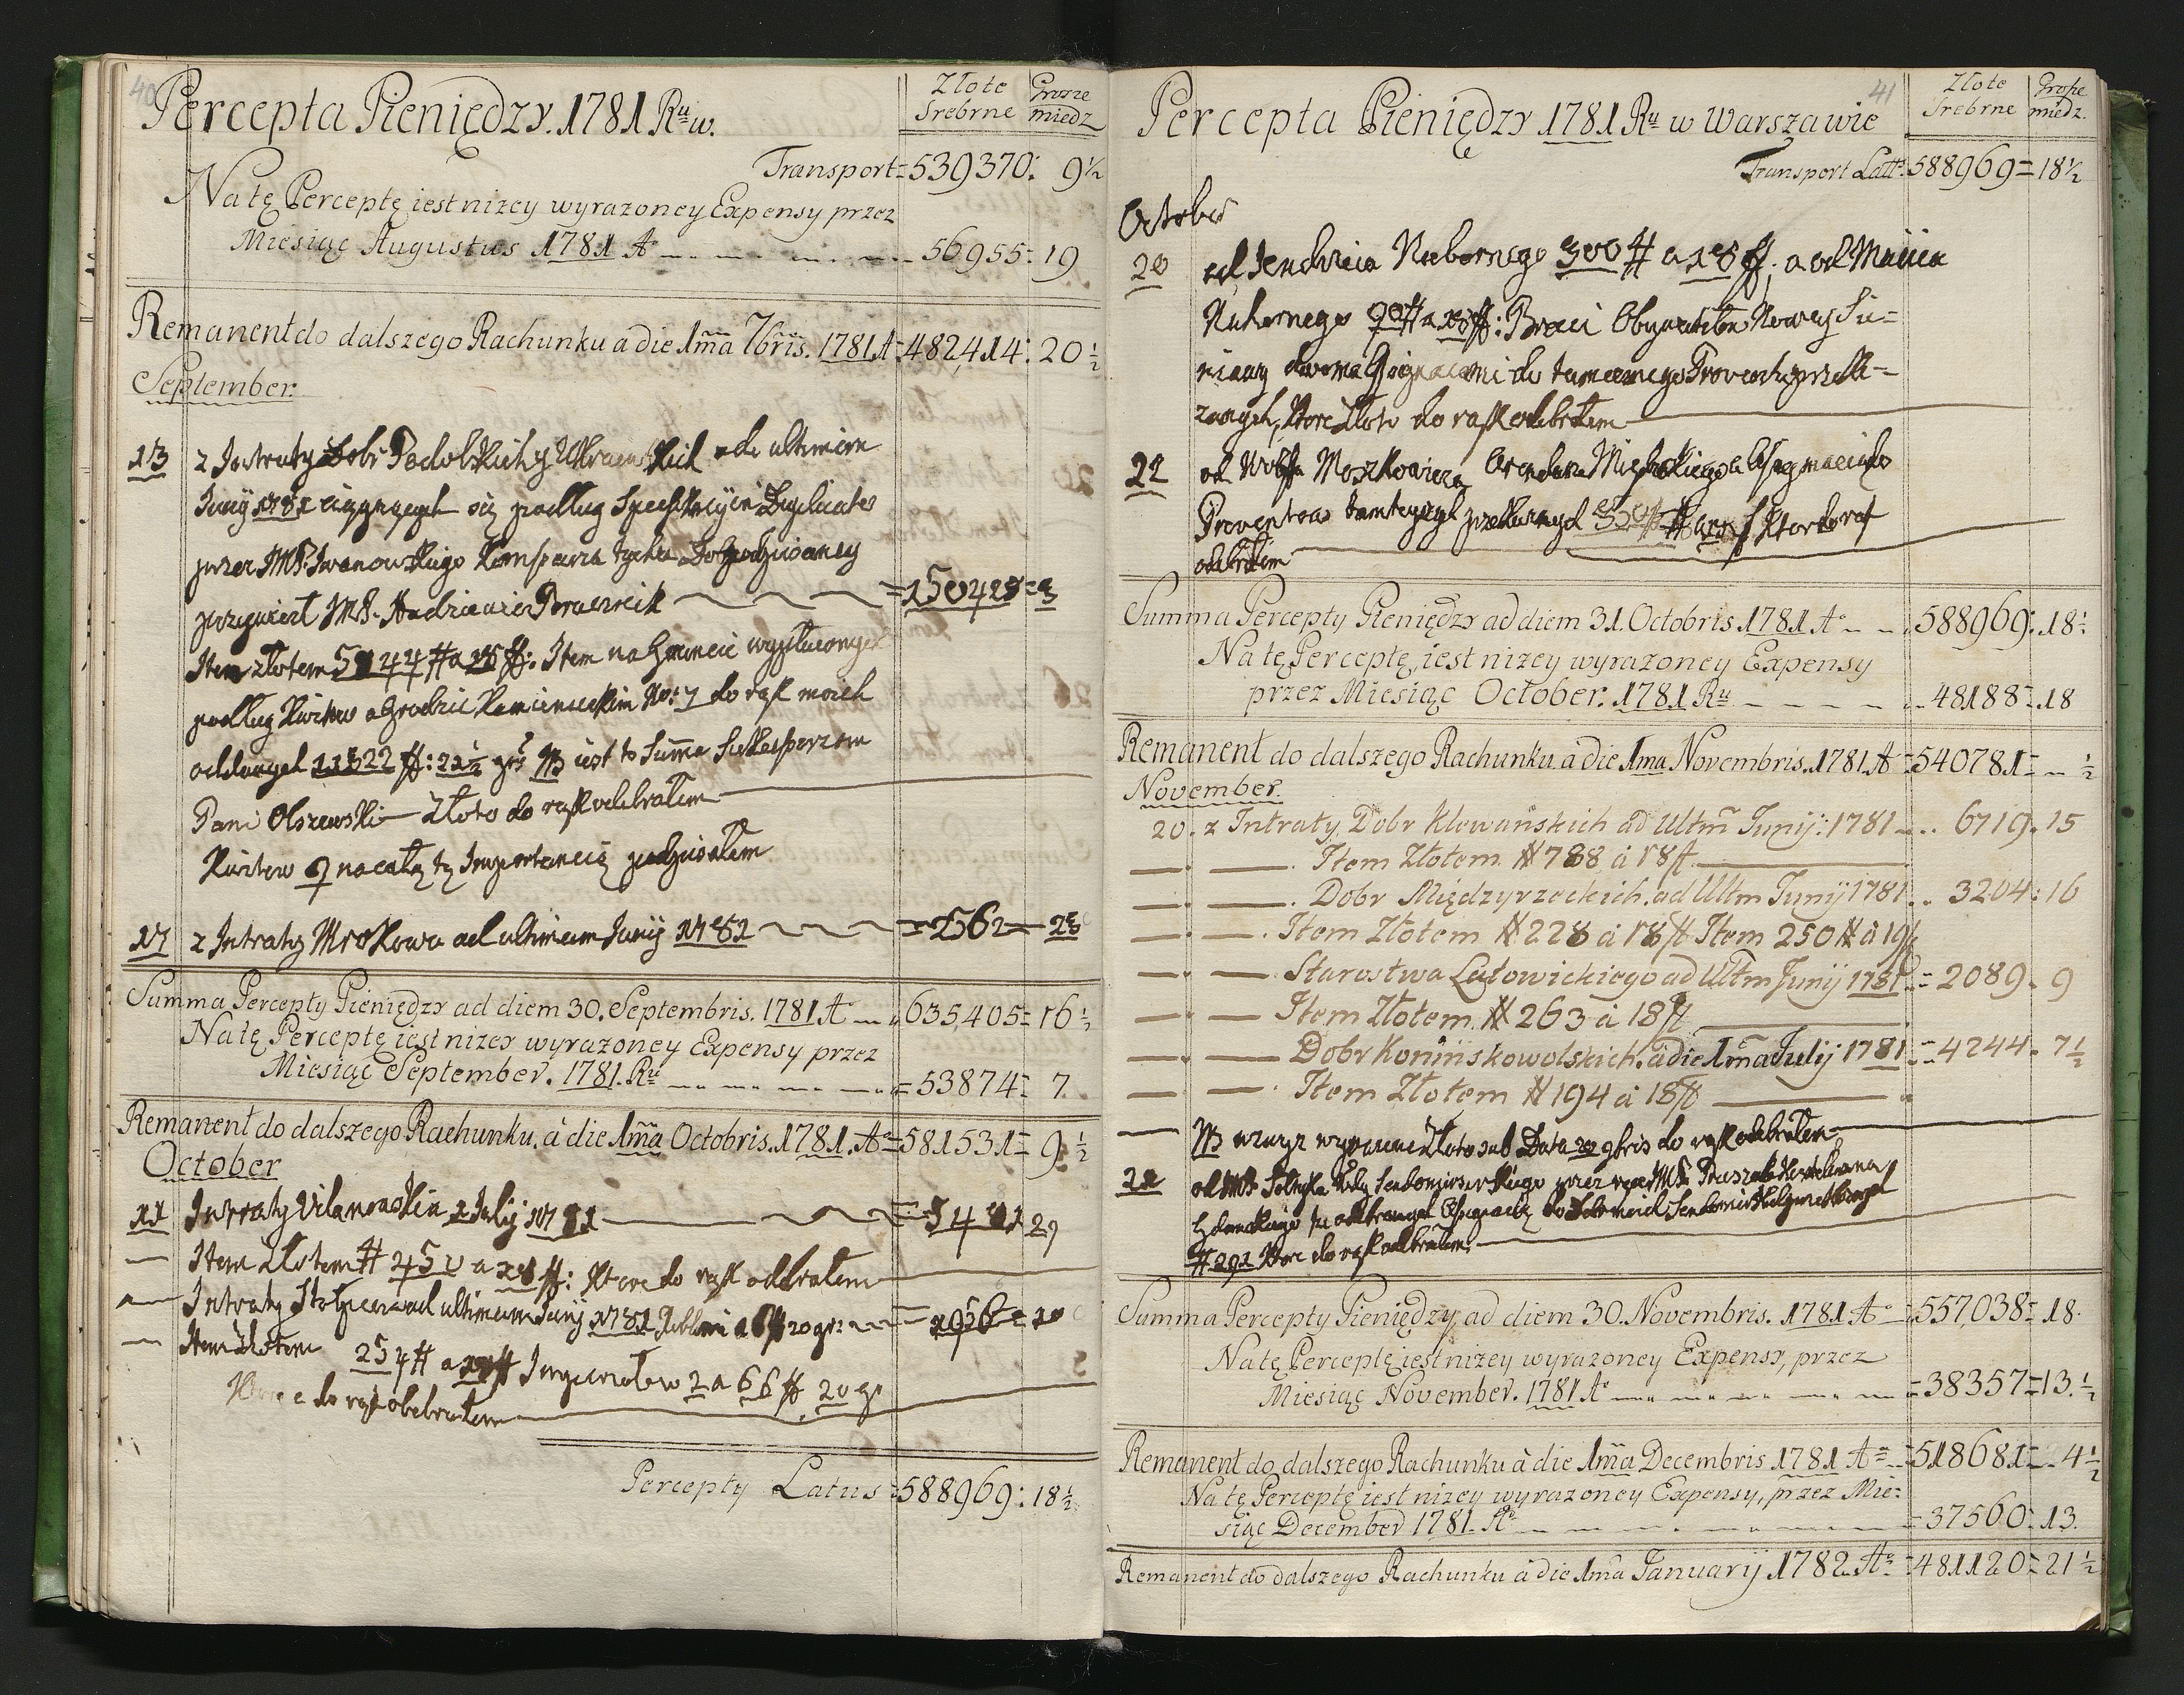 40
Percepta Pieniędzy. 1781 Rᵘ w.
Złote Srebrne
Grosze miedz
Transport = 539370: 9½
Na tę Perceptę iest nizey wyrazoney Expensy przez
Miesiąc Augustus 1781 Aº 56955: 19
Remanent do dalszego Rachunku a die 1ma 7bris. 1781 Aº = 482,414: 20½
September.
13 z Intraty Dobr Podolskich y Ukrainskich ad ultimam
Junij 1781 ciągnących się podług
przez JMP. Iwanowskiego
przywiozł JMP. = 150428 = 3
Item złotem 5144 # a 18 ff: Item na wypłaconych
podług Kwitow a Grodzie Kamienieckim No: 7 do rąk moich
oddanych 11322 ff: 22½ gr NB iest to Summa
Pani Olszewski Złoto do rąk odebrałem
Kwitow 9 na całą tę Importancią podpisałem
17 z Intraty Mrokowa ad ultimam Junij 1781 = 2562 = 28
Summa Percepty Pieniędzy ad diem 30. Septembris. 1781 Aº 635,405 = 16½
Na tę Perceptę iest nizey wyrazoney Expensy przez
Miesiąc September. 1781. Rᵘ = 53874 = 7.
Remanent do dalszego Rachunku. à die 1ma Octobris. 1781. Aº = 581531 = 9½
October
11 Intraty Vilanowskiey 1 Julij 1781 = 5481 29
Item Złotem # 450 a 18 ff: Ktore do rąk odebrałem
Intraty ad ultimam Junij 1781 Rublmi a 6 ff 20 gr: = 1956 = 10
Item Złotem 254 # a 18 ff Imperiałow 2 a 66 ff 20 gr
Ktore do rąk odebrałem
Percepty Latus = 588969: 18½
41
Percepta Pieniędzy 1781 Rᵘ w Warszawie
Złote Srebrne
Grosze miedz.
Transport Latt: 588969 = 18½
October
20 od Nabornego 300 # a 18 ff: a od
90 # a 18 ff: Braci Obywatelow Nowey Su=
ciany dwoma Assignacami do tamecznego Proventu przeka=
zanych, Ktore Złoto do rąk odebrałem
22 od Wolfa Moszkowicza Arendarza
Proventow tamteyszych przekazanych 350 # Ktore do rąk
odebrałem
Summa Percepty Pieniędzy ad diem 31. Octobris. 1781 Aº 588969: 18½
Na tę Perceptę, iest nizey wyrazoney Expensy
przez Miesiąc October. 1781 Rᵘ 48188 = 18
Remanent do dalszego Rachunku à die 1ma Novembris. 1781 Aº = 540781 = ½
November.
20. z Intraty Dobr Klewańskich ad Ultm Junij: 1781 6719. 15
Item Złotem # 788 à 18 ff
Dobr Międzyrzeckich. ad Ultm Junij 1781 3204: 16
Item Złotem # 228 à 18 ff Item 250 # à 19 ff
Starostwa Latowickiego ad Ultm Junij 1781 = 2089. 9
Item Złotem # 263 à 18 ff
Dobr Konińskowolskich. à die 1ma Julij 1781 = 4244. 7½
Item Złotem # 194 à 18 ff
NB wzwyz wyrazone Złoto sub Data 20 9bris do rąk odebrałem
22 od JMP. Sołtyka Wdy Sendomirskiego przez ręce JMP. Kasztelana
Gdanskiego
# 291 Ktore do rąk odebrałem
Summa Percepty Pieniędzy ad diem 30. Novembris. 1781 Aº = 557,038 = 18.
Na tę Perceptę iest nizey wyrazoney Expensy, przez
Miesiąc November. 1781 Aº = 38357 = 13.½
Remanent do dalszego Rachunku à die 1ma Decembris 1781 Aº = 518681 = 4½
Na tę Perceptę iest nizey wyrazoney Expensy, przez Mie:
siąc December 1781. Aº = 37560: 13.
Remanent do dalszego Rachunku à die 1ma Januarij 1782. Aº = 481120 = 21½